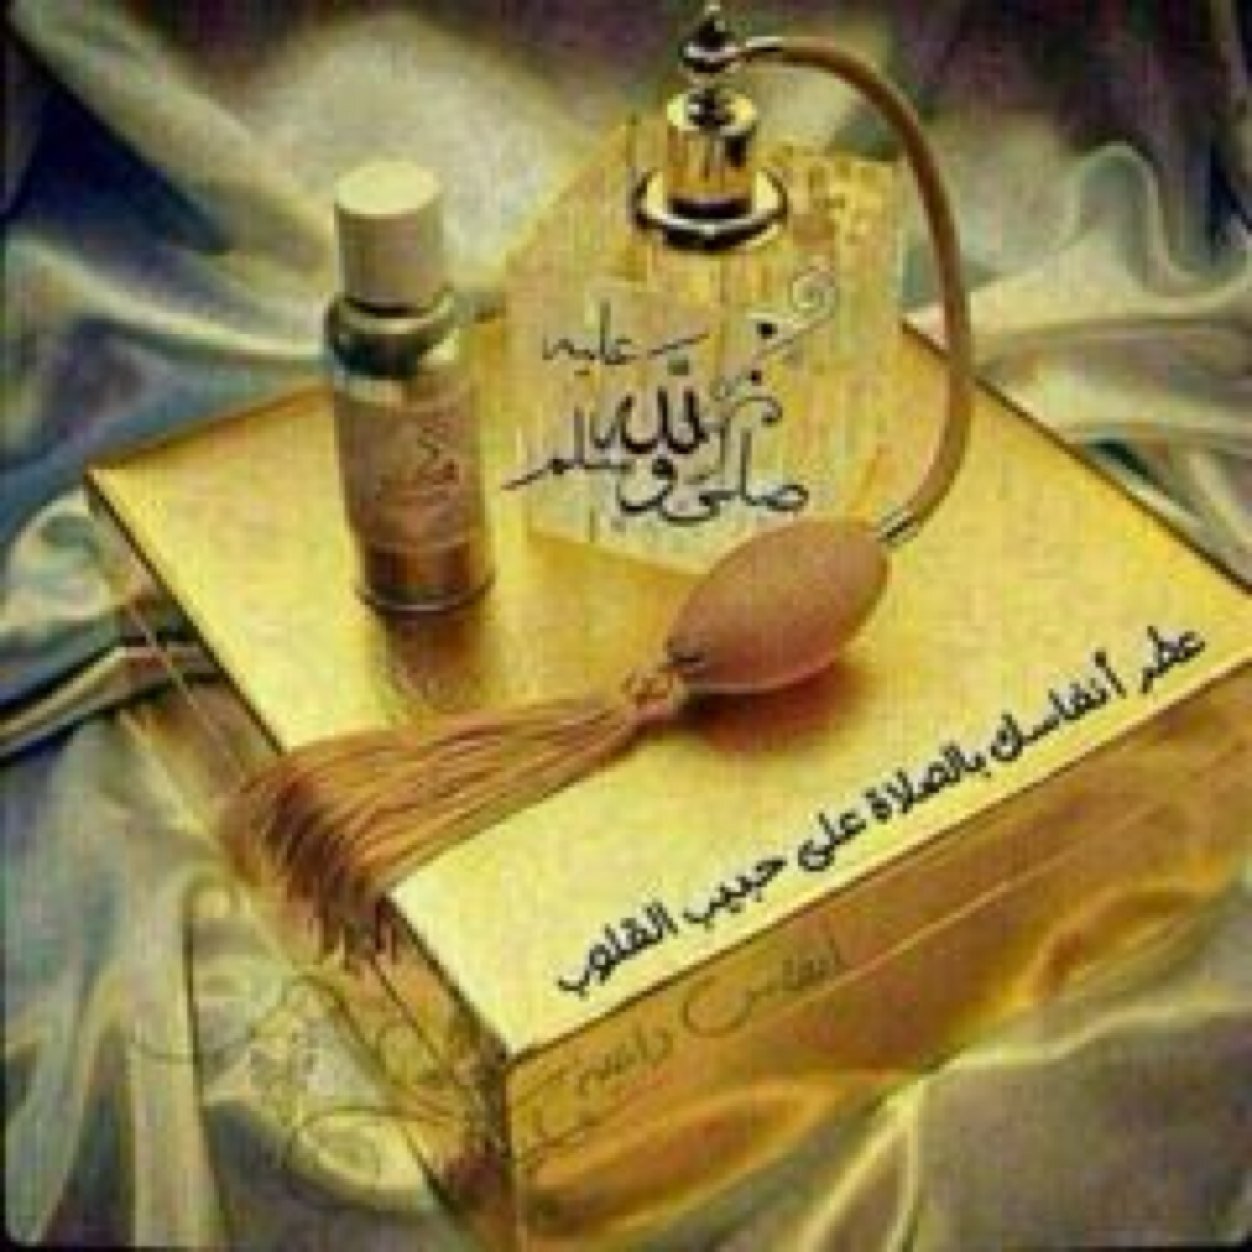 صلى الله عليه وسلم
عطر أنفاسك بالصلاة على حبيب القلوب